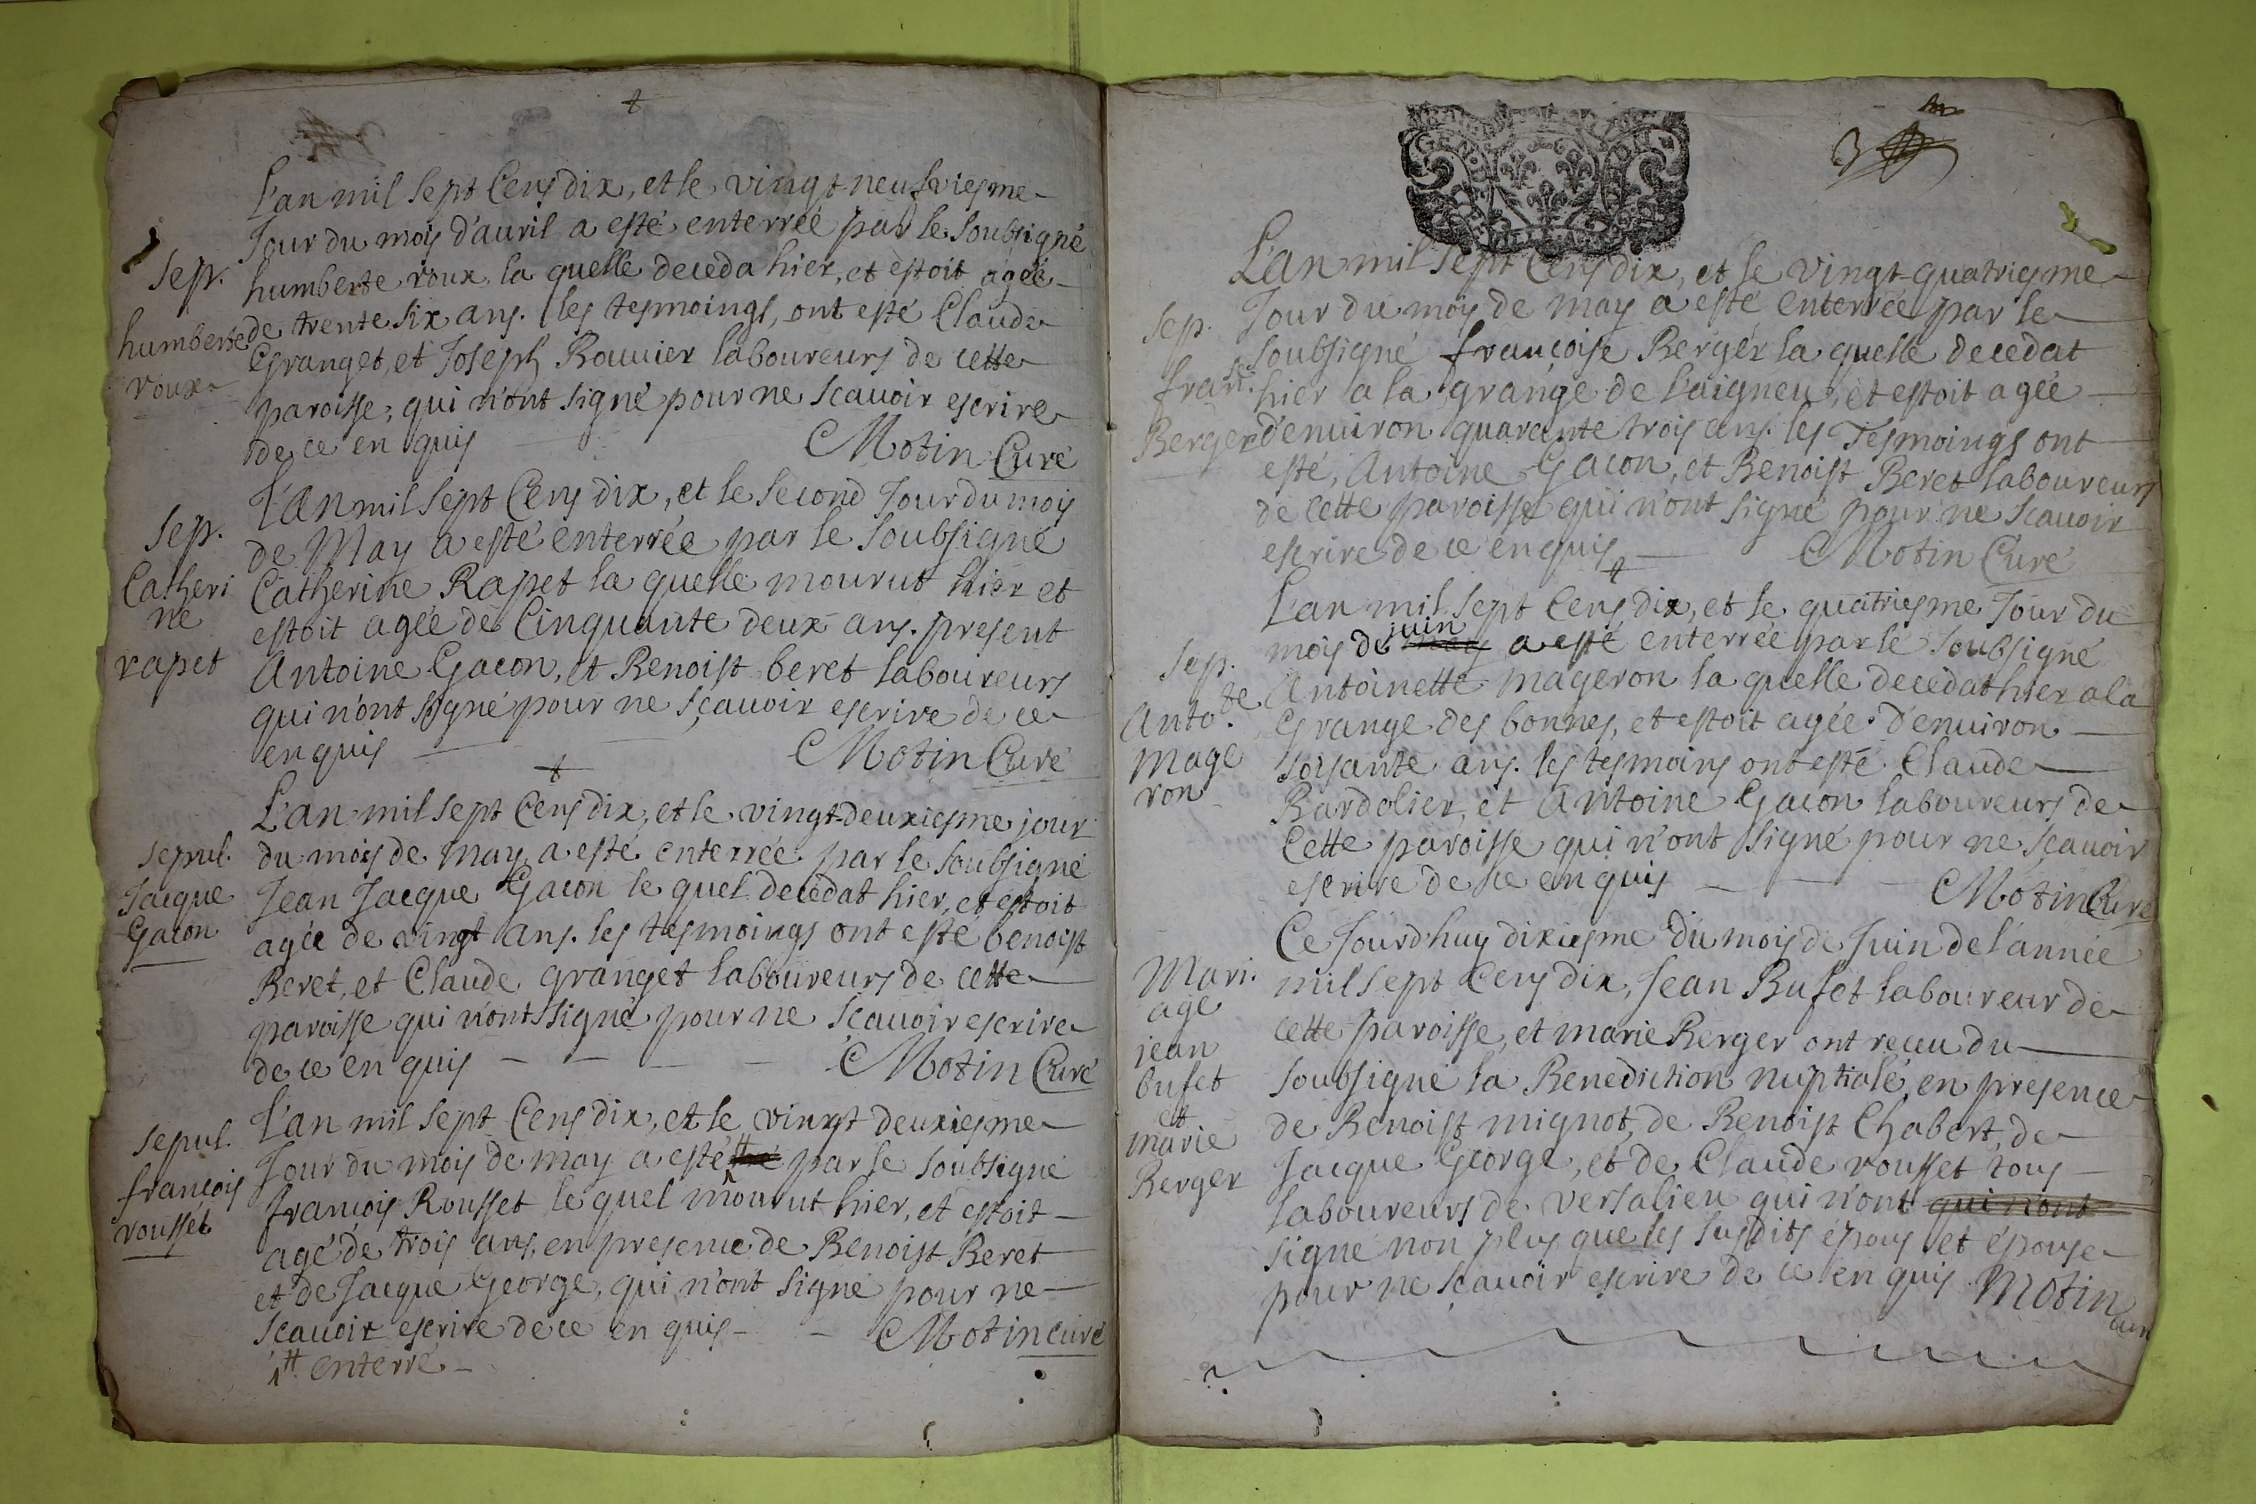 L'an mil sept Cens dix, et le vingt neufviesme
Jour du mois d'auril a esté enterreé par le soubsigné
sep.
humberte roux la quelle deceda hier, et estoit ageé
humberte
roux
de trente six ans. les tesmoings, ont esté Claude
Granget, et Joseph Bouuier laboureurs de cette
paroisse, qui n'ont signé pour ne scauoir escrire
de ce en quis
Motin Curé
L'an mil sept Cens dix, et le second Jour du mois
sep.
Catheri
ne
rapet
de May a esté enterrée par le soubsigné
Catherine Rapet la quelle mourut hier et
estoit agée de Cinquante deux ans. present
Antoine Gacon, et Benoist beret laboureurs
qui n'ont signé pour ne sçauoir escrire de ce
enquis
Motin Curé
L'an mil sept Cens dix, et le vingt-deuxiesme jour
sepul.
Jacque
Gacon
du mois de may a esté enterreé par le soubsigné
Jean Jacque Gacon le quel decedat hier, et estoit
agée de vingt ans. les tesmoings ont esté benoist
Beret, et Claude granget laboureurs de cette
paroisse qui n'ont signé pour ne scauoir escrire
de ce en quis
Motin Curé
L'an mil sept Cens dix, et le vingt deuxiesme
sepul.
francois
rousset
Jour du mois de may a esté # par le soubsigné
francois Rousset le quel mourut hier, et estoit
agé de trois ans, en presence de Benoist Beret
et de Jacque George, qui n'ont signé pour ne
scauoir escrire de ce en quis
Motin curé
# enterré
L'an mil sept Cens dix, et le vingt-quatriesme
sep.
franse.
Berger
Jour du mois de may a esté enterreé par le
soubsigné françoise Berger la quelle decedat
hier a la grange de l'aigneu, et estoit agée
d'enuiron quarante trois ans. les Tesmoings ont
esté, Antoine Gacon, et Benoist Beret laboureurs
de cette paroisse qui n'ont signé pour ne scauoir
escrire de ce enquis
Motin Curé
L'an mil sept Cens dix, et le quatriesme Jour du
sep.
Anto.te
mage
ron
mois de juin may a esté enterreé par le soubsigné
Antoinette mageron la quelle decedat hier a la
Grange des bonnes, et estoit agée d'enuiron
soisante ans. les tesmoins ont esté Claude
Bardolier, et Antoine Gacon laboureurs de
Cette paroisse qui n'ont signé pour ne scauoir
escrire de ce enquis
Motin Curé
Ce Jourd'huy dixiesme du mois de Juin de l'année
Mari.
age
jean
bufet
et
marie
Berger
mil sept Cens dix, Jean Bufet laboureur de
cette paroisse, et marie Berger ont receu du
soubsigné la Benediction nuptiale, en presence
de Benoist mignot, de Benoist Chabert, de
Jacque George, et de Claude rousset tous
laboureurs de versalieu qui n'ont qui n'ont
signé non plus que les susdits épous et épouse
pour ne scauoir escrire de ce en quis Motin
Curé